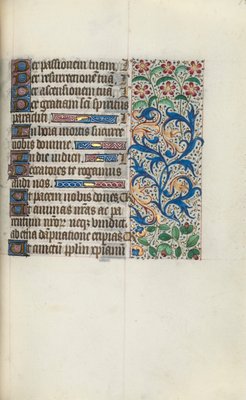 Per passionem tuam.
Per resurrectionē tuā.
Per ascensionem tuā.
Per gratiam sc̄i spiritus
paracliti
In hora mortis succurre
nobis domine.
In die iudicii.
Peccatores te rogamus
audi nos.
Ut pacem nobis dones.
Ut animas nr̄as et pa
rentum nr̄orū
ab eterna dāpnatione eripias
Ut